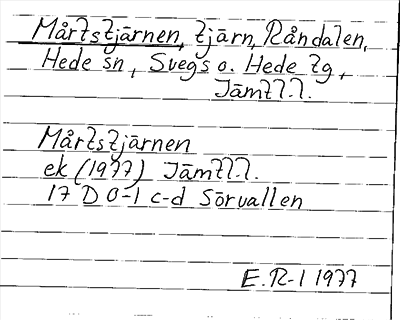 Mårtstjärnen, tjärn, Råndalen,
Hede sn, Svegs o. Hede tg,
Jämtl.l.
Mårtstjärnen
ek (1977) Jämtl.l.
17 D 0-1 c-d Sörvallen
E.R-l 1977